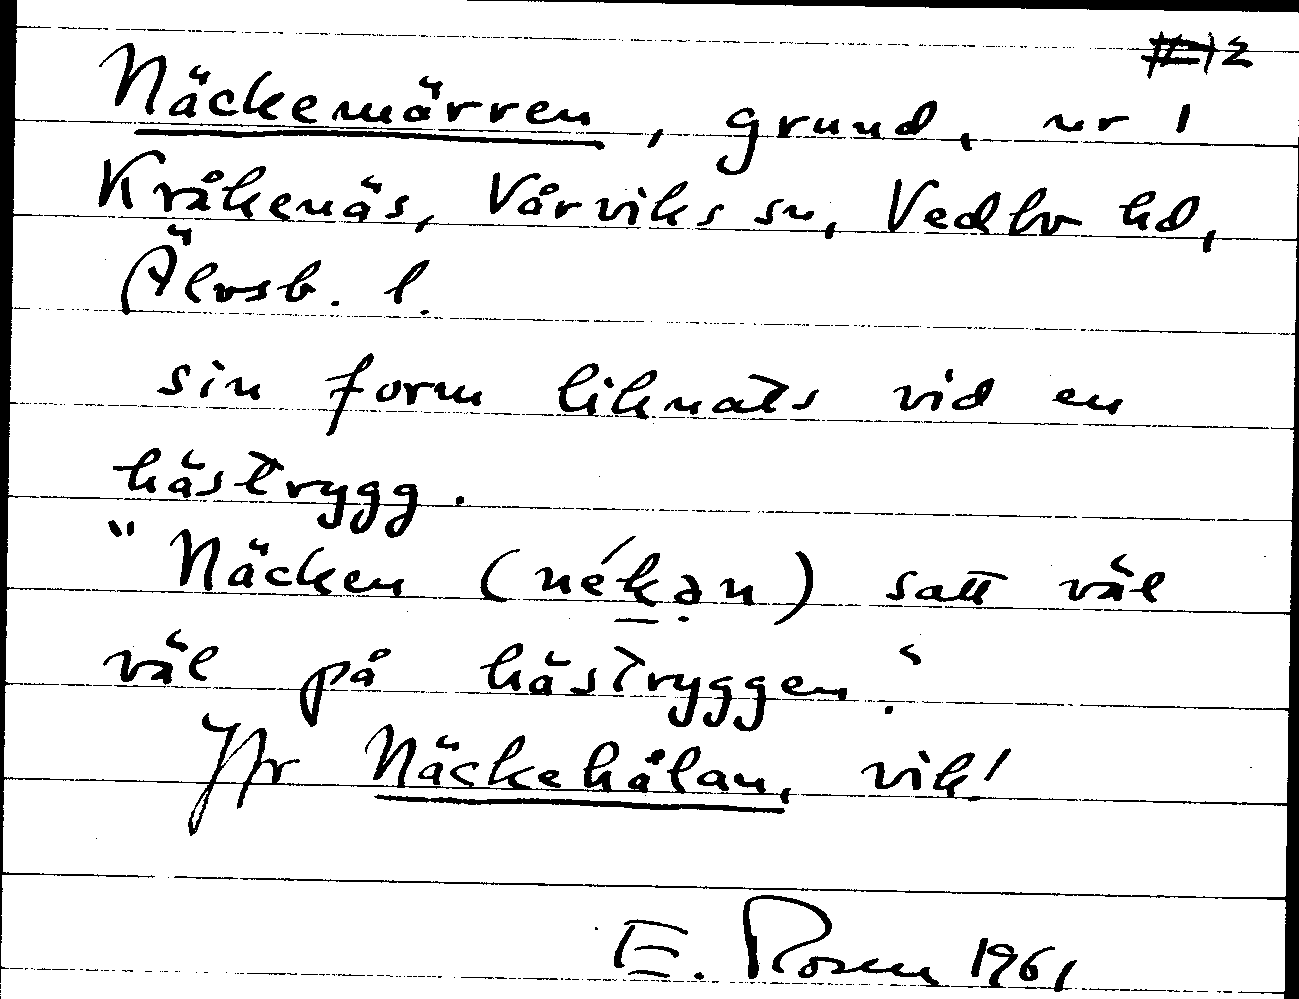 2
Näckemärren, grund, nr 1
Kråkenäs, Vårviks sn, Vedbo hd,
Älvsb. l.
sin form liknats vid en
hästrygg.
"Näcken (nékən) satt väl
väl på hästryggen."
Jfr Näckehålan, vik!
E. Rosen 1961